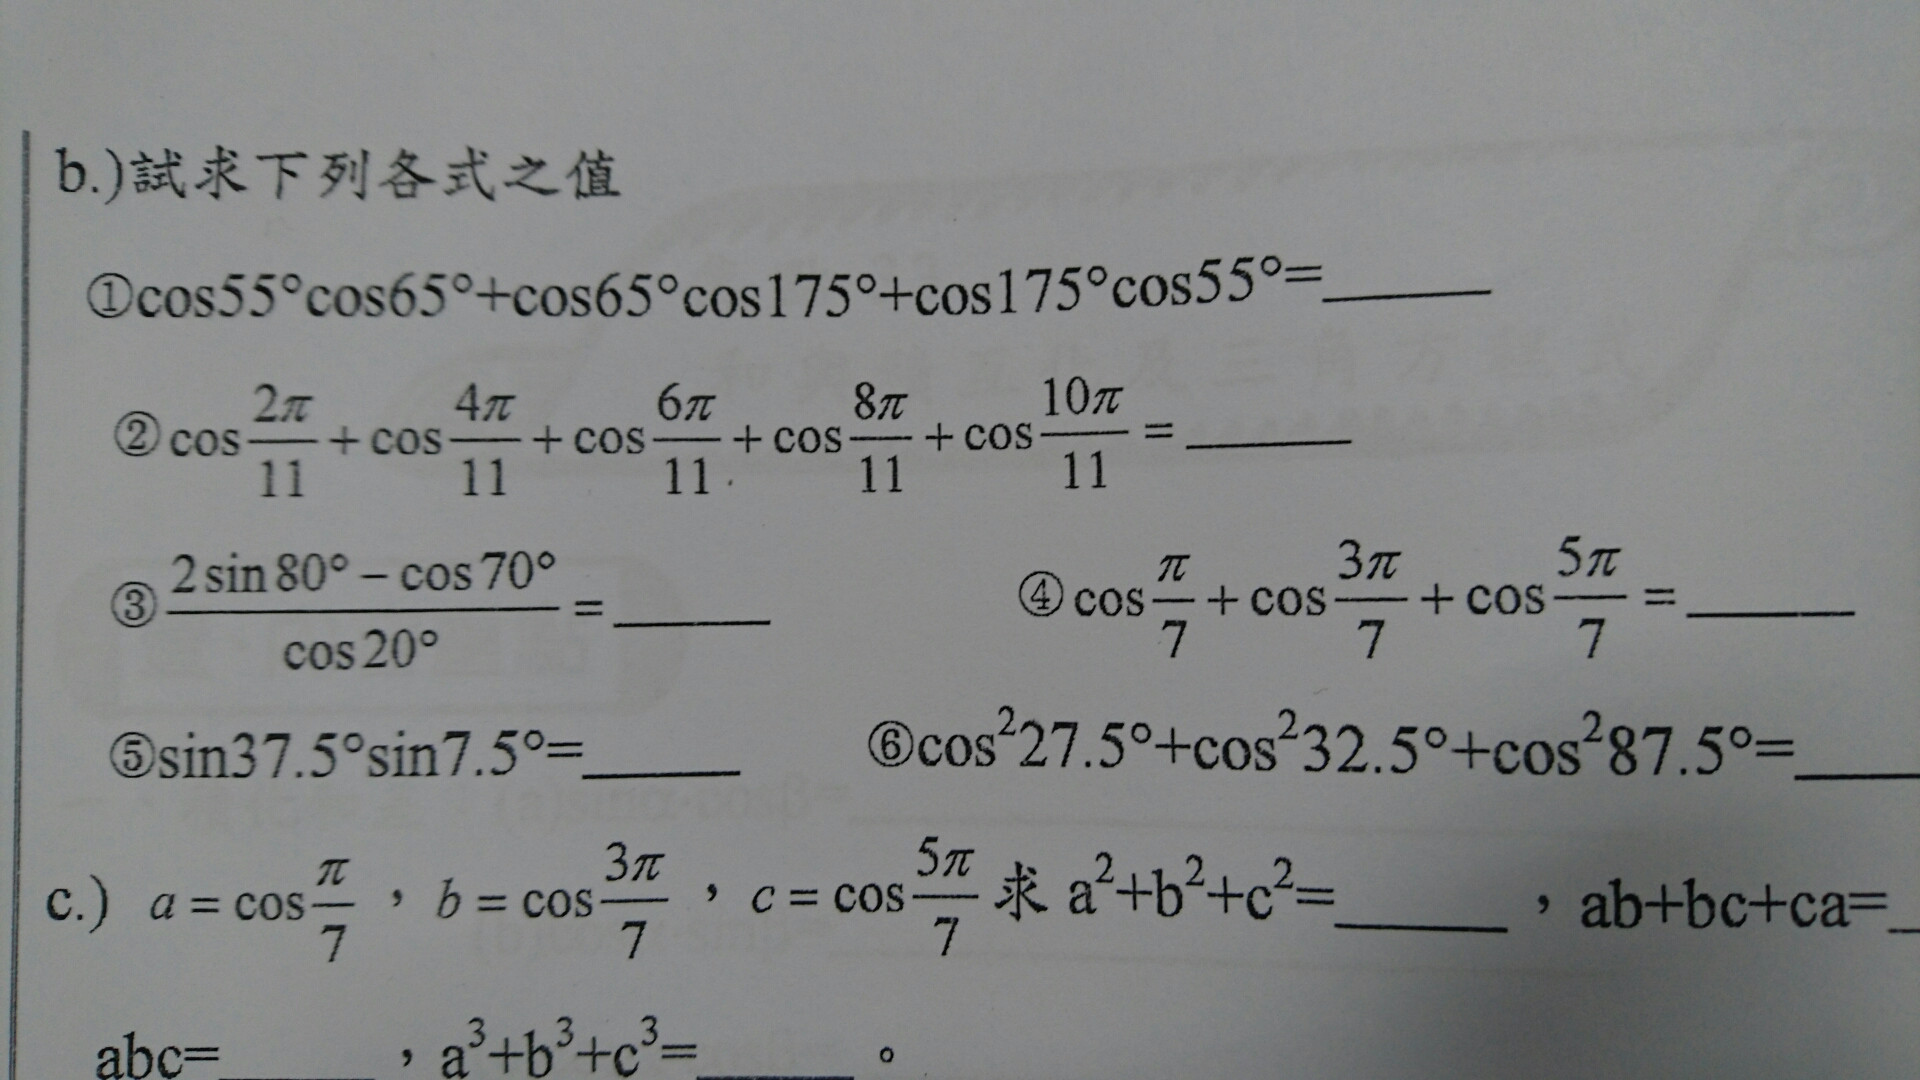 b.)試求下列各式之值
①cos55°cos65°+cos65°cos175°+cos175°cos55°=______
②cos 2π/11 + cos 4π/11 + cos 6π/11 + cos 8π/11 + cos 10π/11 =______
③ (2sin80°–cos70°)/cos20° =______ ④cos π/7 + cos 3π/7 + cos 5π/7 =______
⑤sin37.5°sin7.5°=______ ⑥cos²27.5°+cos²32.5°+cos²87.5°=______
c.) a = cos π/7 , b = cos 3π/7 , c = cos 5π/7 求 a²+b²+c²=______ , ab+bc+ca=_
abc=______ , a³+b³+c³=______ 。